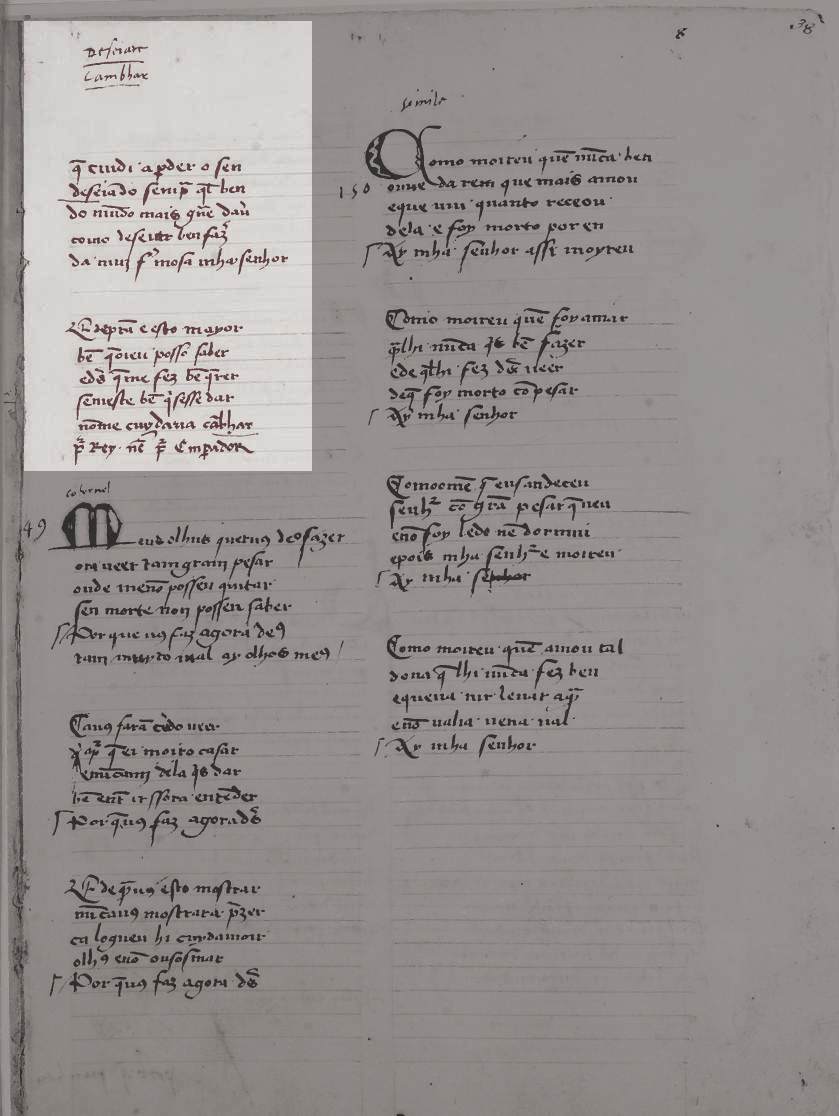 deseiar
cambhar
q̄ cuidi a ꝑder o sen
deseiādo semp̄ q̄l ben
do mūdo mais gue dau
como deseiar ben faz̄
da mui f̄mosa mha senhor
E deprā e esto mayor
bē q̄ oieu posso saber
e ds̄ q̄ me fez bē q̄rer
se meste bē q̇sesse dar
nome cuydaria cābhar
p̄ Rey nē p̄ Emꝑador
38
8
cohernel
149
Meus olhus quer uꝯ de9 fazer
ora ueer tam gram pesar
onde me nō possen quitar
sen morte non possen saber
Por que uꝯ faz agora deꝯ
tam muyto mal ay olhos meꝯ
Ca uꝯ farā cedo ueer
por q̄ eu moiro casar
e nūcami dela q̇s dar
bē entēder
Por q̄ uꝯ faz agora ds̄
E de q̄ uꝯ esto mostrar
nūca uꝯ mostrara p̄zer
ca loguen hi cuydamoir
olhꝯ e nō ouso
Por q̄ uꝯ faz agora ds̄
simile
150
Como moireu quē nūca ben
ouue da rem que mais amou
e que uiu quanto receou
dela e foy morto por en
Ay mha senhor assi moyreu
Como moireu quē foy amar
q̄ lhi nūca q̇s bē fazer
e de q̄ lhi fez ds̄ ueer
de q̄ foy morto cō pesar
Ay mha senhor
Comoomē q̄ ensandeceu
senhr̄ cō grā pesar q̄ uiu
e nō foy ledo nē dormiu
epois mha senhr̄ e moireu
Ay mha senhor
Como moireu quē amou tal
dona q̄ lhi nūca fez ben
e quen a uir leuar a q̄
e nō ualia nena ual
Ay mha senhor